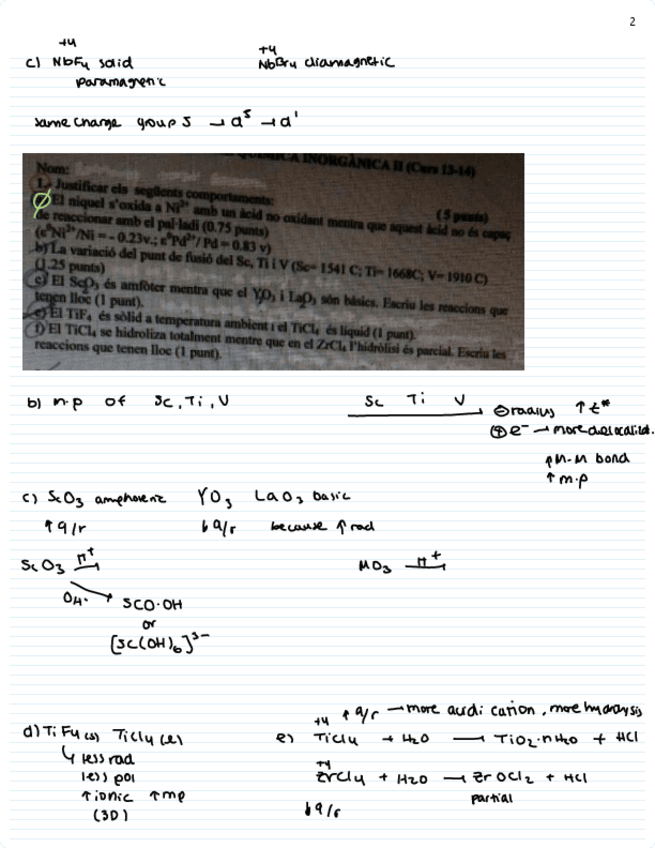 2
+4 +4
c) NbF4 solid NbBr4 diamagnetic
paramagnetic
same charge group 5 → d5 → d1
QUÍMICA INORGÀNICA II (Curs 13-14)
Nom:
1. Justificar els següents comportaments: (5 punts)
El níquel s'oxida a Ni2+ amb un àcid no oxidant mentra que aquest àcid no és capaç
de reaccionar amb el pal·ladi (0.75 punts)
(ε°Ni2+/Ni = - 0.23v.; ε°Pd2+/Pd = 0.83 v)
b) La variació del punt de fusió del Sc, Ti i V (Sc= 1541 C; Ti= 1668C; V= 1910 C)
(1.25 punts)
c) El ScO3 és amfòter mentra que el YO3 i LaO3 són bàsics. Escriu les reaccions que
tenen lloc (1 punt).
e) El TiF4 és sòlid a temperatura ambient i el TiCl4 és líquid (1 punt).
f) El TiCl4 se hidroliza totalment mentre que en el ZrCl4 l'hidròlisi és parcial. Escriu les
reaccions que tenen lloc (1 punt).
b) m.p of Sc, Ti, V Sc Ti V ⊖ radius ↑ z*
⊕ e- → more delocalitzat.
↑ M-M bond
↑ m.p
c) ScO3 amphoteric YO3 LaO3 basic
↑ q/r ↓ q/r because ↑ rad
ScO3 H+ MO3 H+
OH- SCO·OH
or
[Sc(OH)6]3-
+4 ↑ q/r → more acidic cation, more hydrolysis
d) TiF4 (s) TiCl4 (l) e) TiCl4 + H2O → TiO2·nH2O + HCl
↳ less rad +4
less pol ZrCl4 + H2O → ZrOCl2 + HCl
↑ ionic ↑ mp partial
(3D) ↓ q/r